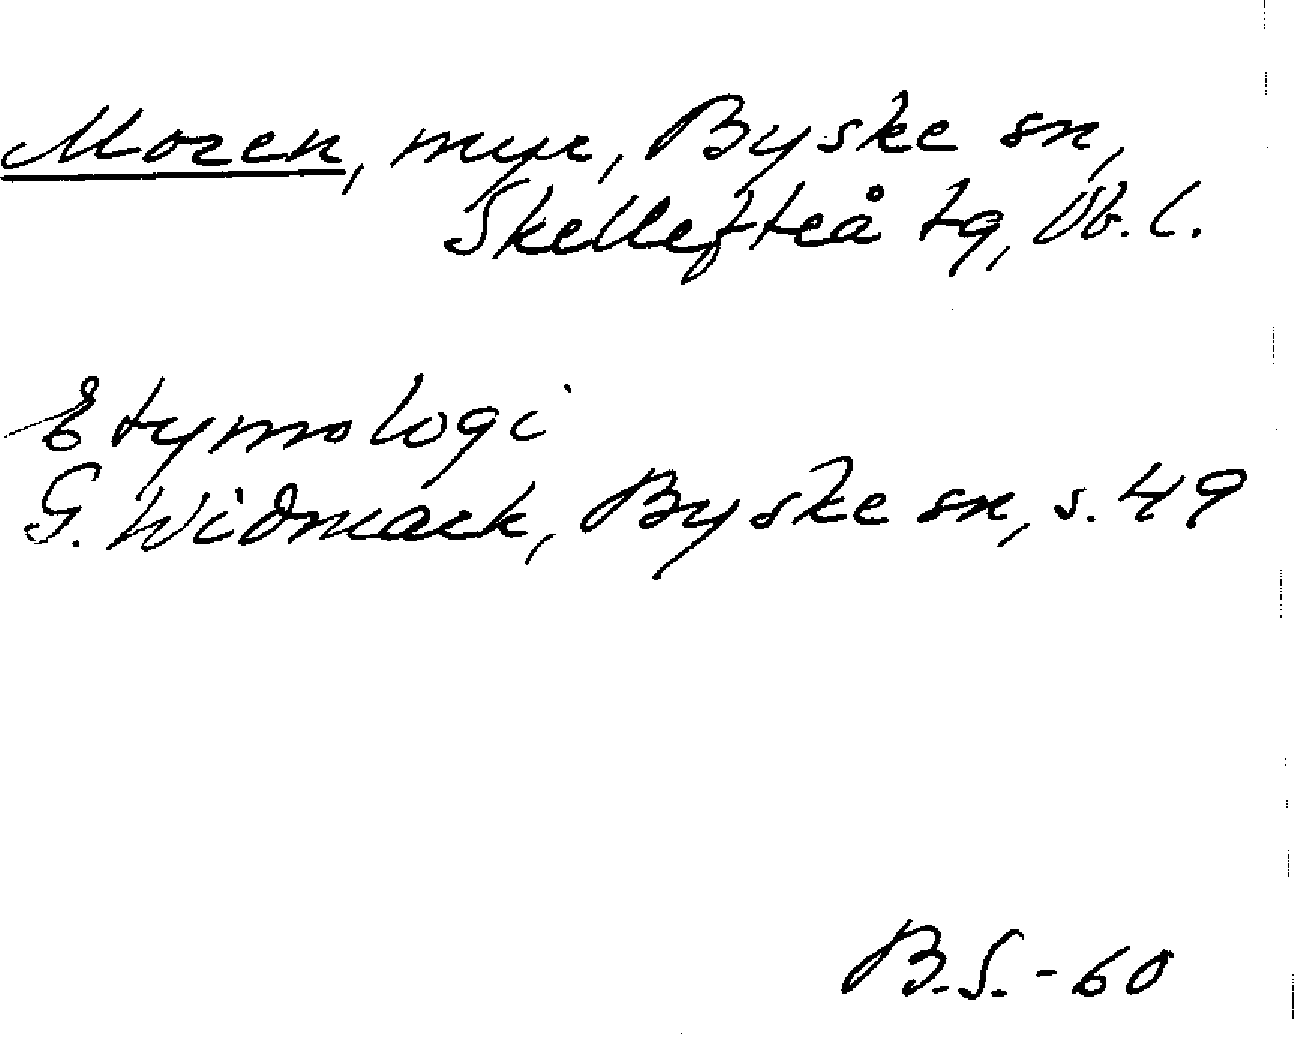 Moren, myr, Byske sn,
Skellefteå tg, Vb. l.
Etymologi
G. Widmark, Byske sn, s. 49
B.S.-60